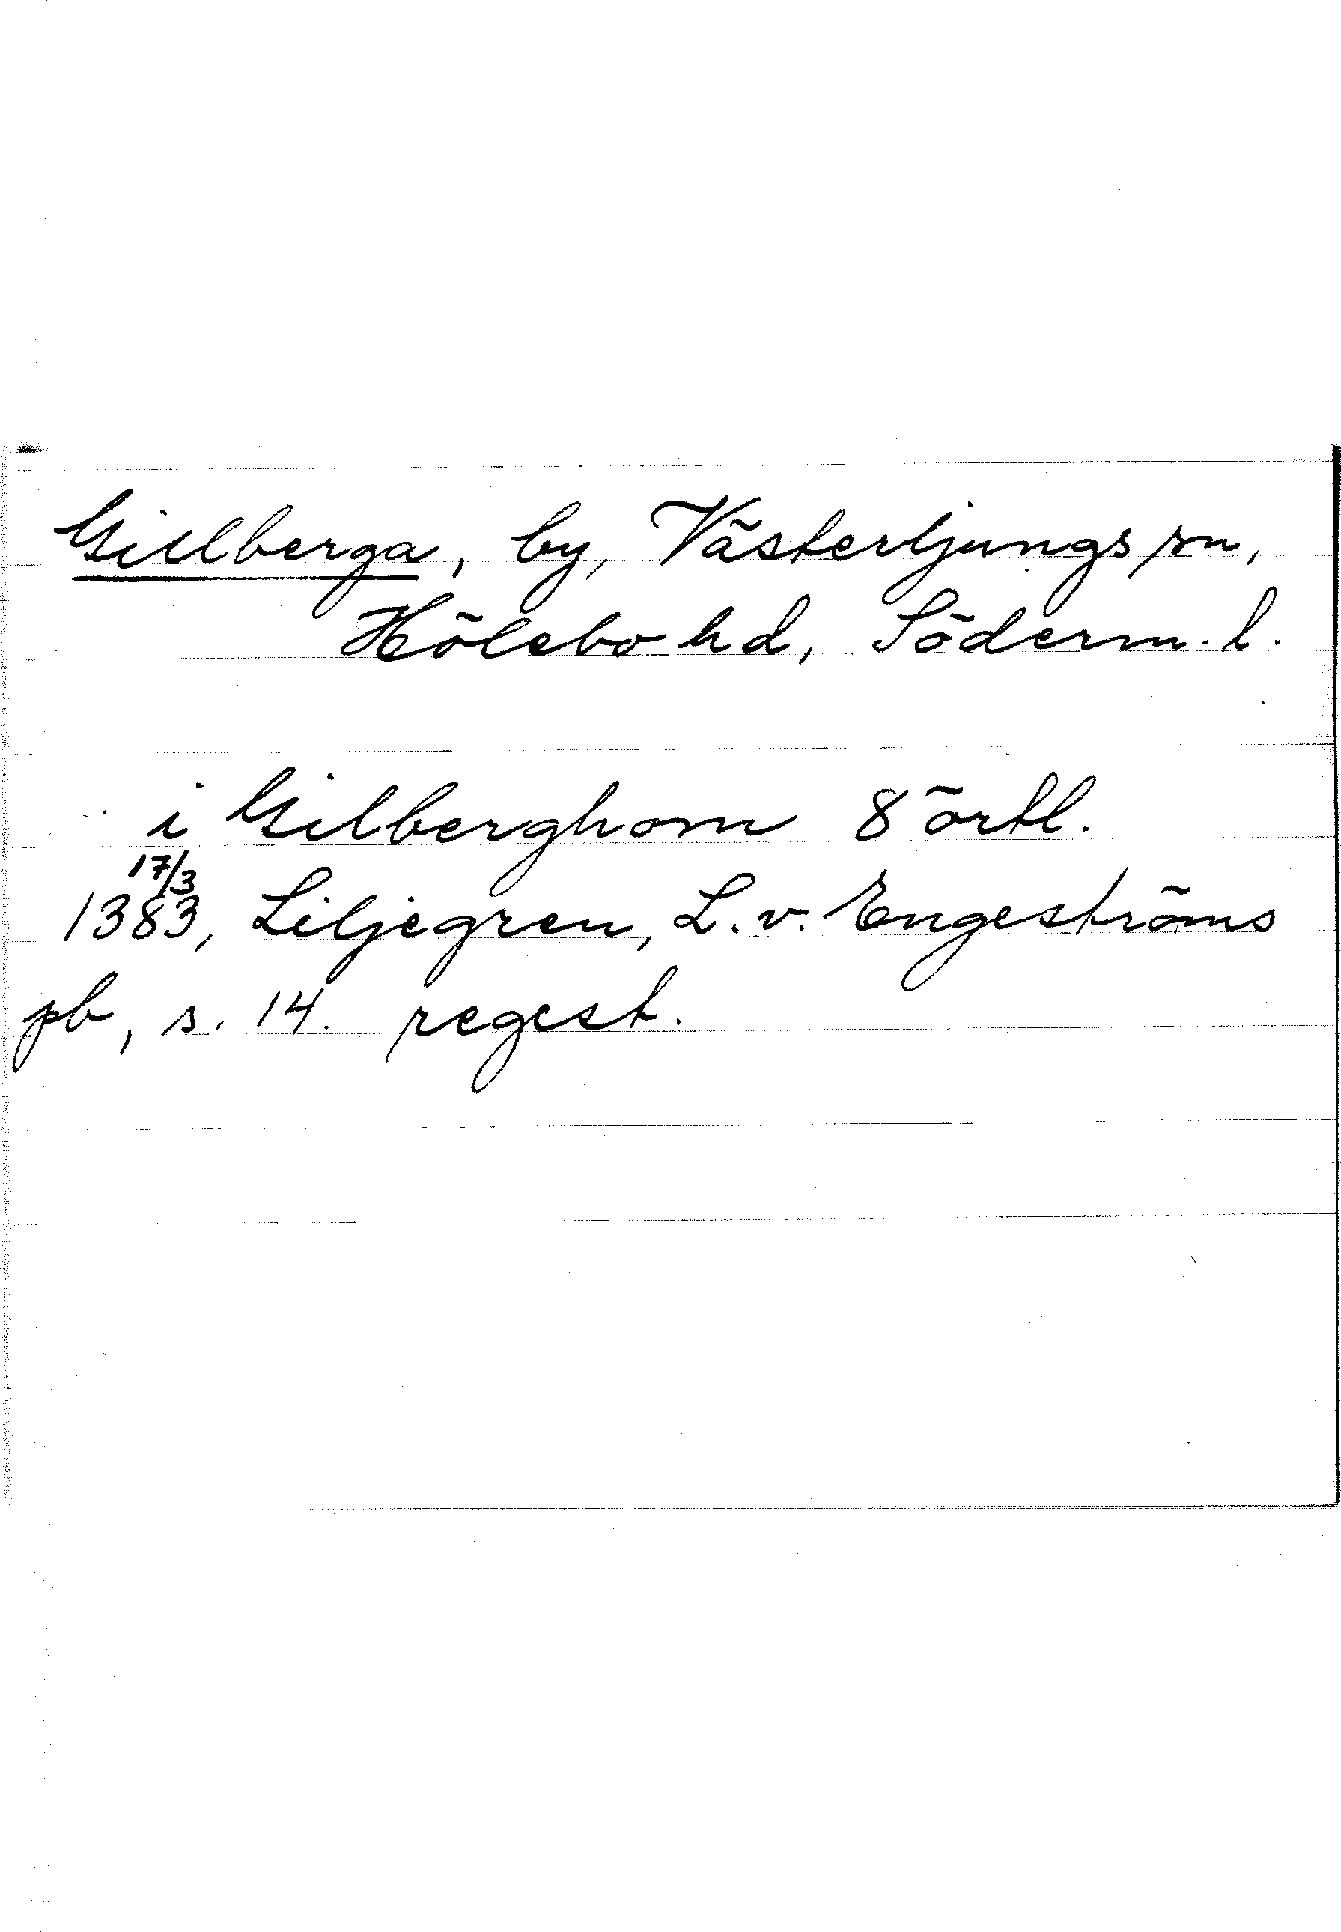 Gillberga, by, Västerljungs sn,
Hölebo hd, Söderm. l.
i Gilberghom 8 örtl.
17/3
1383, Liljegren, L. v. Engeströms
pb, s. 14. regest.